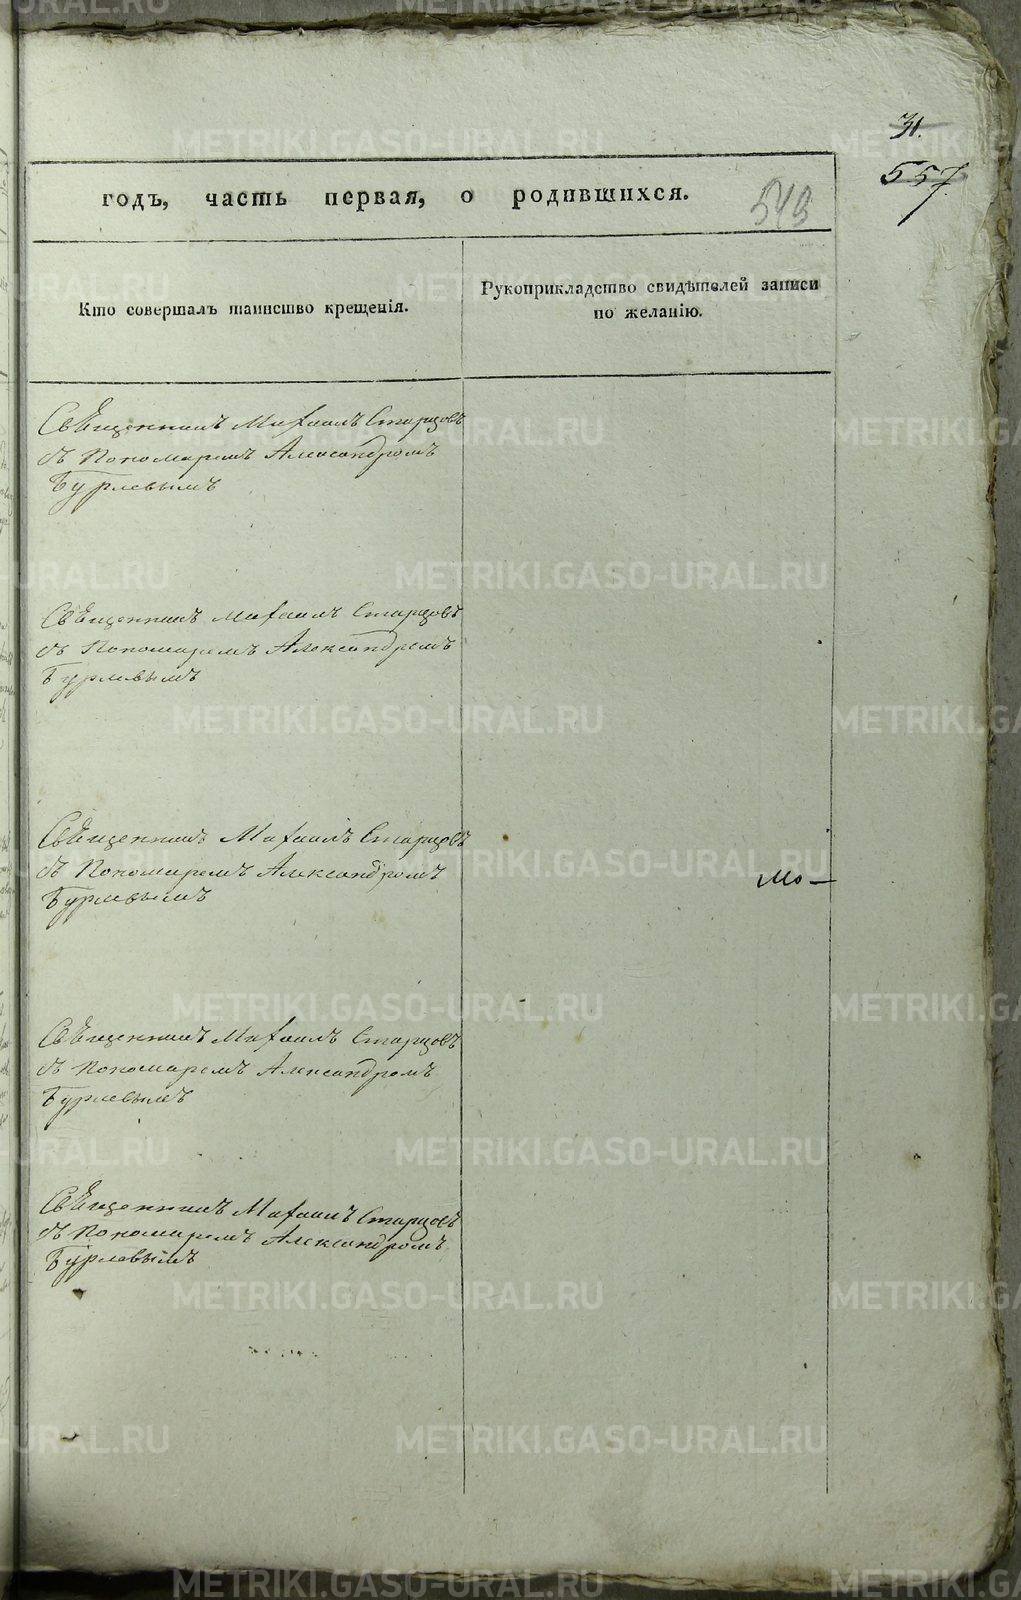 31.
557
годъ, часть первая, о родившихся.
549
Кто совершалъ таинство крещенія.
Рукоприкладство свидѣтелей записи
по желанію.
Священникъ Михаилъ Старцовъ
съ Пономаремъ Александромъ
Бурлевымъ
Священникъ Михаилъ Старцовъ
съ Пономаремъ Александромъ
Бурлевымъ
Священникъ Михаилъ Старцовъ
съ Пономаремъ Александромъ
Бурлевымъ
мо-
Священникъ Михаилъ Старцовъ
съ Пономаремъ Александромъ
Бурлевымъ
Священникъ Михаилъ Старцовъ
съ Пономаремъ Александромъ
Бурлевымъ
METRIKI.GASO-URAL.RU